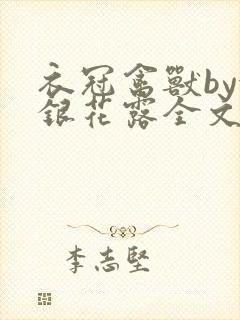 衣冠禽獸by
銀花露全文
李志堅